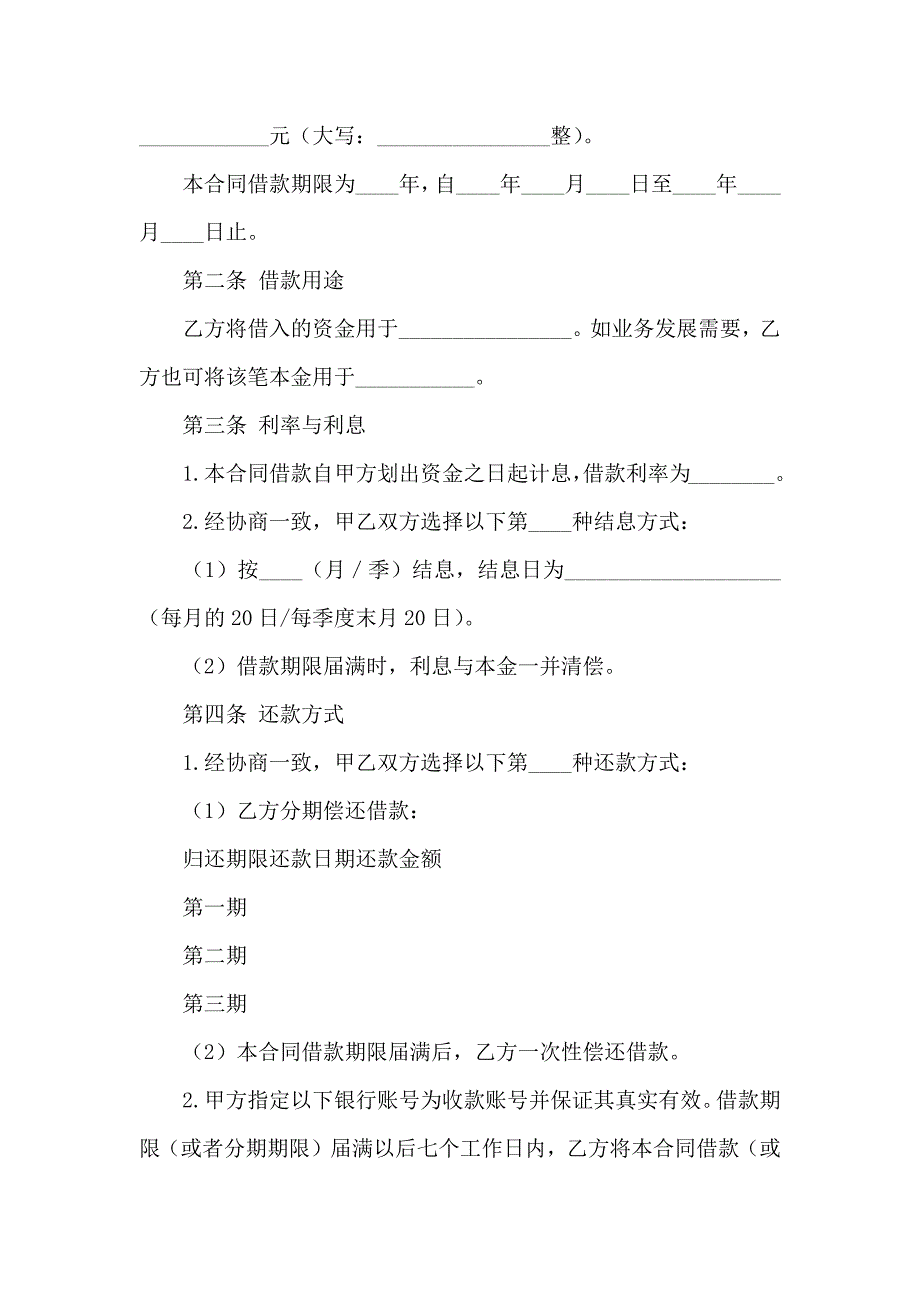 ____________元（大写：________________整）。
本合同借款期限为____年，自____年____月____日至____年____
月____日止。
第二条 借款用途
乙方将借入的资金用于________________。如业务发展需要，乙
方也可将该笔本金用于___________。
第三条 利率与利息
1.本合同借款自甲方划出资金之日起计息，借款利率为________。
2.经协商一致，甲乙双方选择以下第____种结息方式：
（1）按____（月／季）结息，结息日为____________________
（每月的20日/每季度末月20日）。
（2）借款期限届满时，利息与本金一并清偿。
第四条 还款方式
1.经协商一致，甲乙双方选择以下第____种还款方式：
（1）乙方分期偿还借款：
归还期限还款日期还款金额
第一期
第二期
第三期
（2）本合同借款期限届满后，乙方一次性偿还借款。
2.甲方指定以下银行账号为收款账号并保证其真实有效。借款期
限（或者分期期限）届满以后七个工作日内，乙方将本合同借款（或